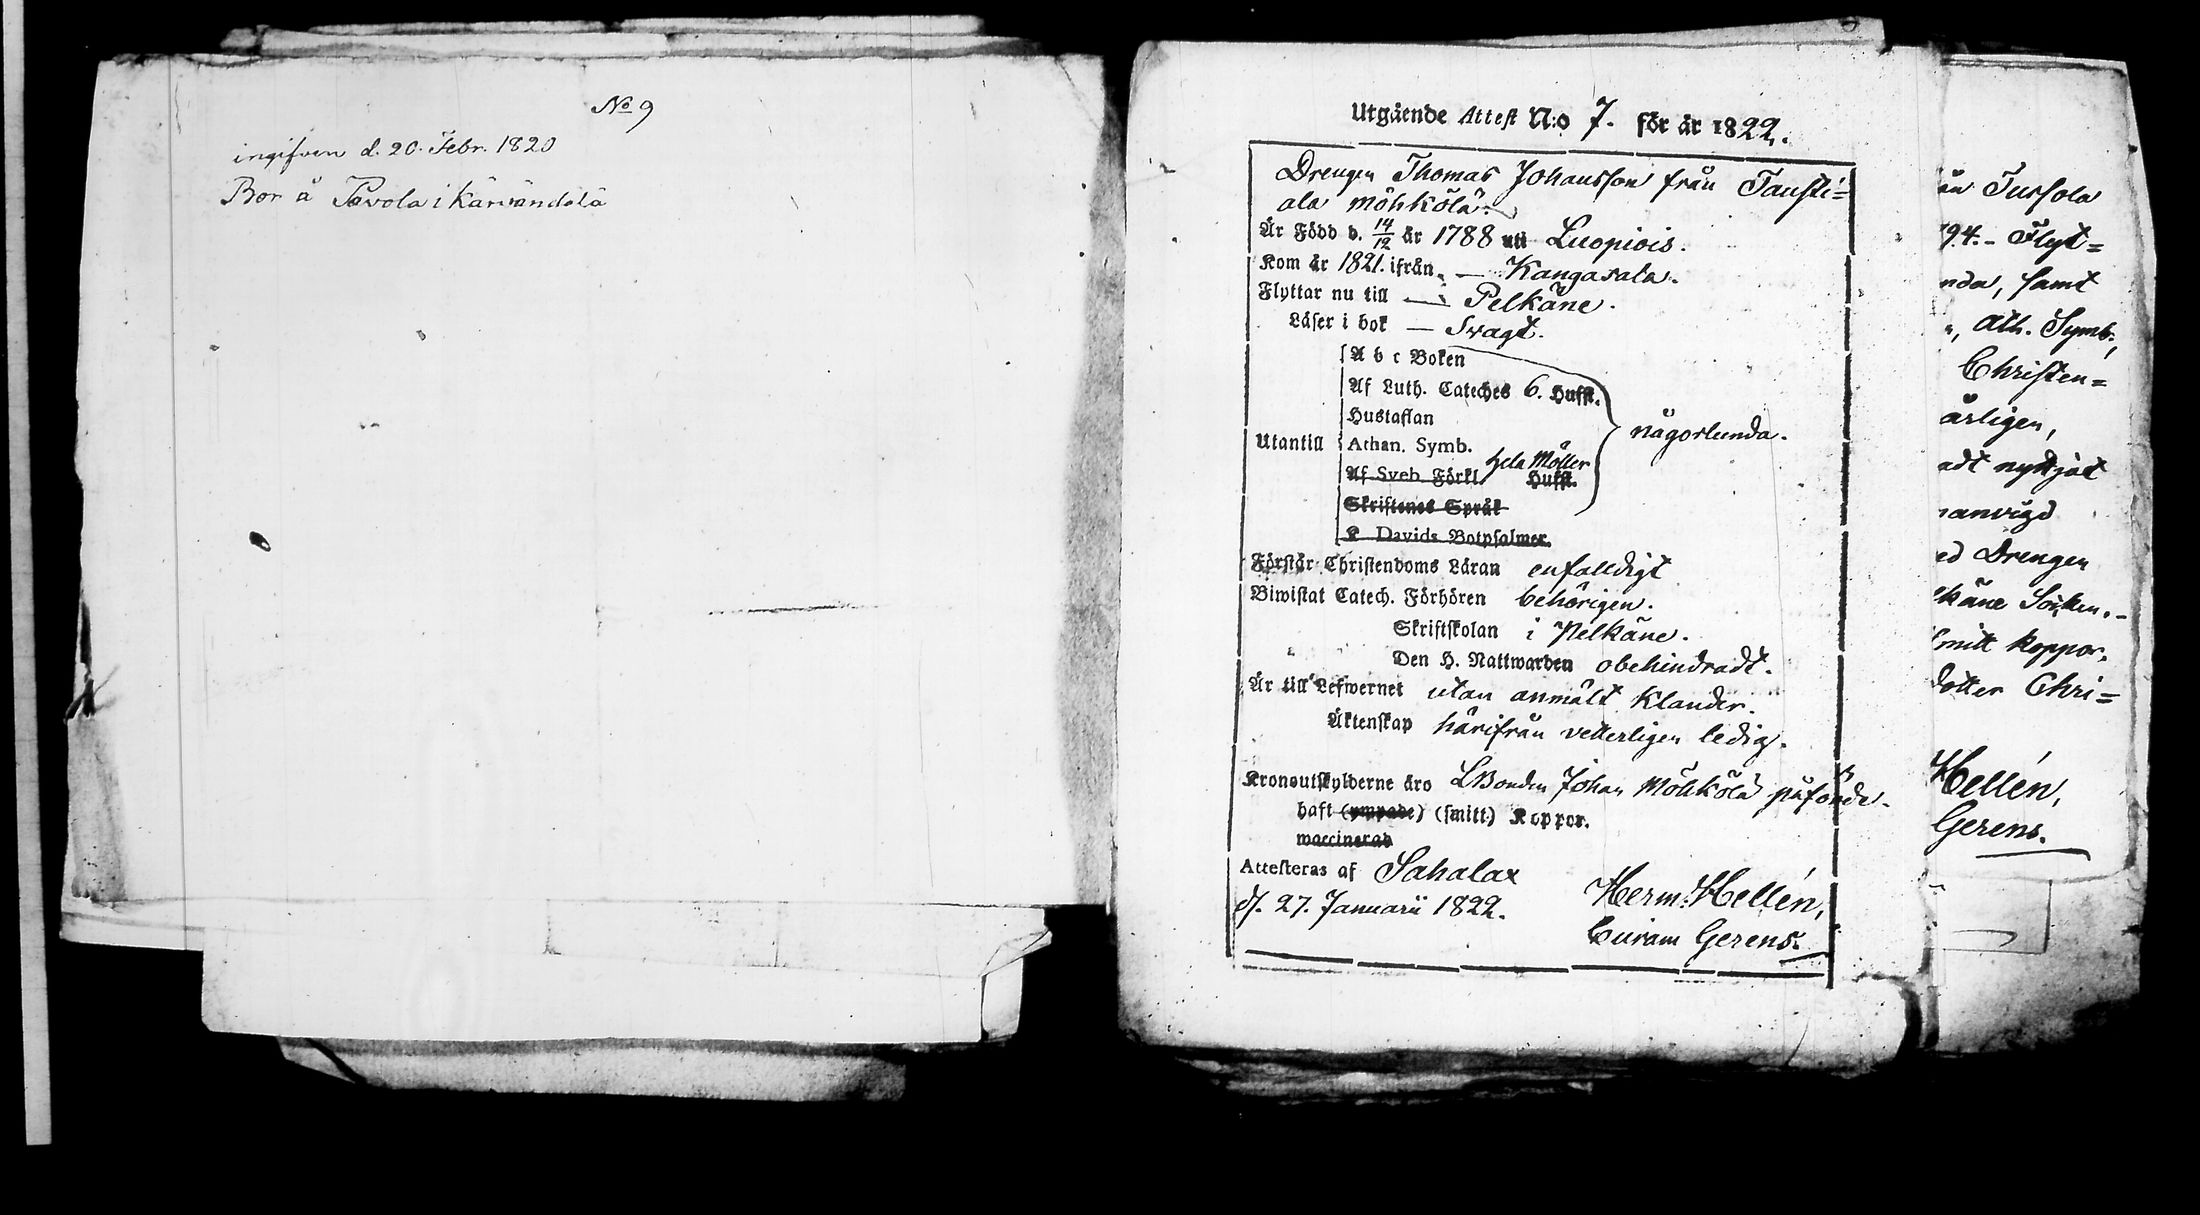 No 9
ingifven d. 20. Febr. 1820
Bor å Pavola i Kärvändälä
Utgående Attest N:o 7. för år 1822.
Drengen Thomas Johansson från Tausti=
ala Möhkölä.
Är Född d. 14/12 år 1788 uti Luopiois.
Kom år 1821. ifrån. — Kangasala.
Flyttar nu till — Pelkäne.
Läser i bok — Svagt.
A b c Boken
Af Luth. Cateches 6. Hufst.
Hustaflan
Utantill Athan. Symb. någorlunda.
hela Möller
Af Sveb. Förkl. Hufst.
Skriftenes Språk
Davids Botpsalmer.
Förstår Christendoms Läran enfalldigt
Biwistat Catech. Förhören behörigen.
Skriftskolan i Pelkäne.
Den H. Nattwarden obehindradt.
Är till Lefwernet utan anmält klander.
Äktenskap härifrån vetterligen ledig.
Kronoutskylderne äro LBonden Johan Möhkölä påförde.
haft (ympade) (smitt) Koppor.
waccinerad
Attesteras af Sahalax
d. 27. Januarii 1822. Herm: Hellén,
Curam Gerens.
än Tursola
94.- Flyt=
nda, samt
Ath. Symb.,
Christen=
ärligen,
adt nyttjat
anvigd
ed Drengen
käne Socken.-
smitt koppor.
dotter Chri=
Hellén,
Gerens.